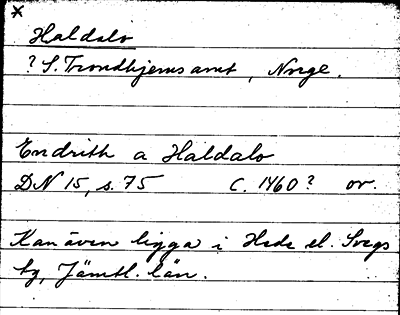 Haldalo
? S. Trondhjems amt, Norge.
Endrith a Haldalo
DN 15, s. 75 C. 1460? or.
Kan även ligga i Hede el. Svegs
tg, Jämtl. län.